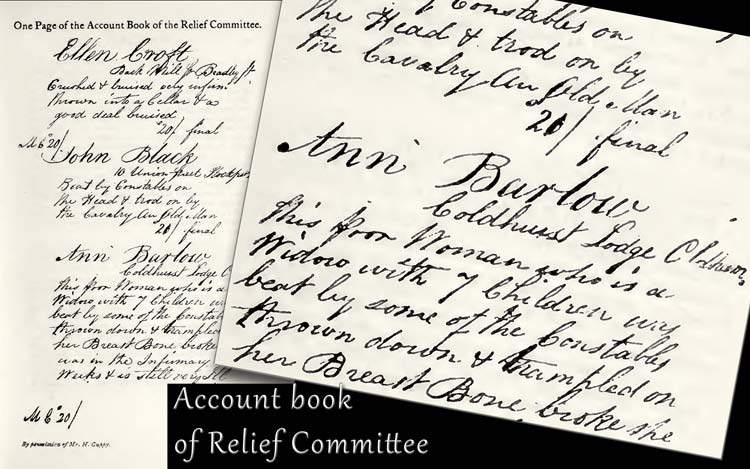 One Page of the Account Book of the Relief Committee.
Ellen Croft
Back Hill St Bradley St
Crushed & bruised very infirm
thrown into a Cellar & a
good deal bruised
20/ final
M C 20/
John Black
10 Union Street Stockport
Beat by Constables on
the Head & trod on by
the Cavalry An Old Man
20/ final
Ann Barlow
Coldhurst Lodge O
This poor Woman who is a
Widow with 7 Children was
beat by some of the Constab
thrown down & trampled
her Breast Bone broke
was in the Infirmary
Weeks & is still very ill
M C 20/
By permission of Mr. H. Guppy.
Constables on
the Head & trod on by
the Cavalry An Old Man
20/ final
Ann Barlow
Coldhurst Lodge Oldham
This poor Woman who is a
Widow with 7 Children was
beat by some of the Constables
thrown down & trampled on
her Breast Bone broke she
Account book
of Relief Committee